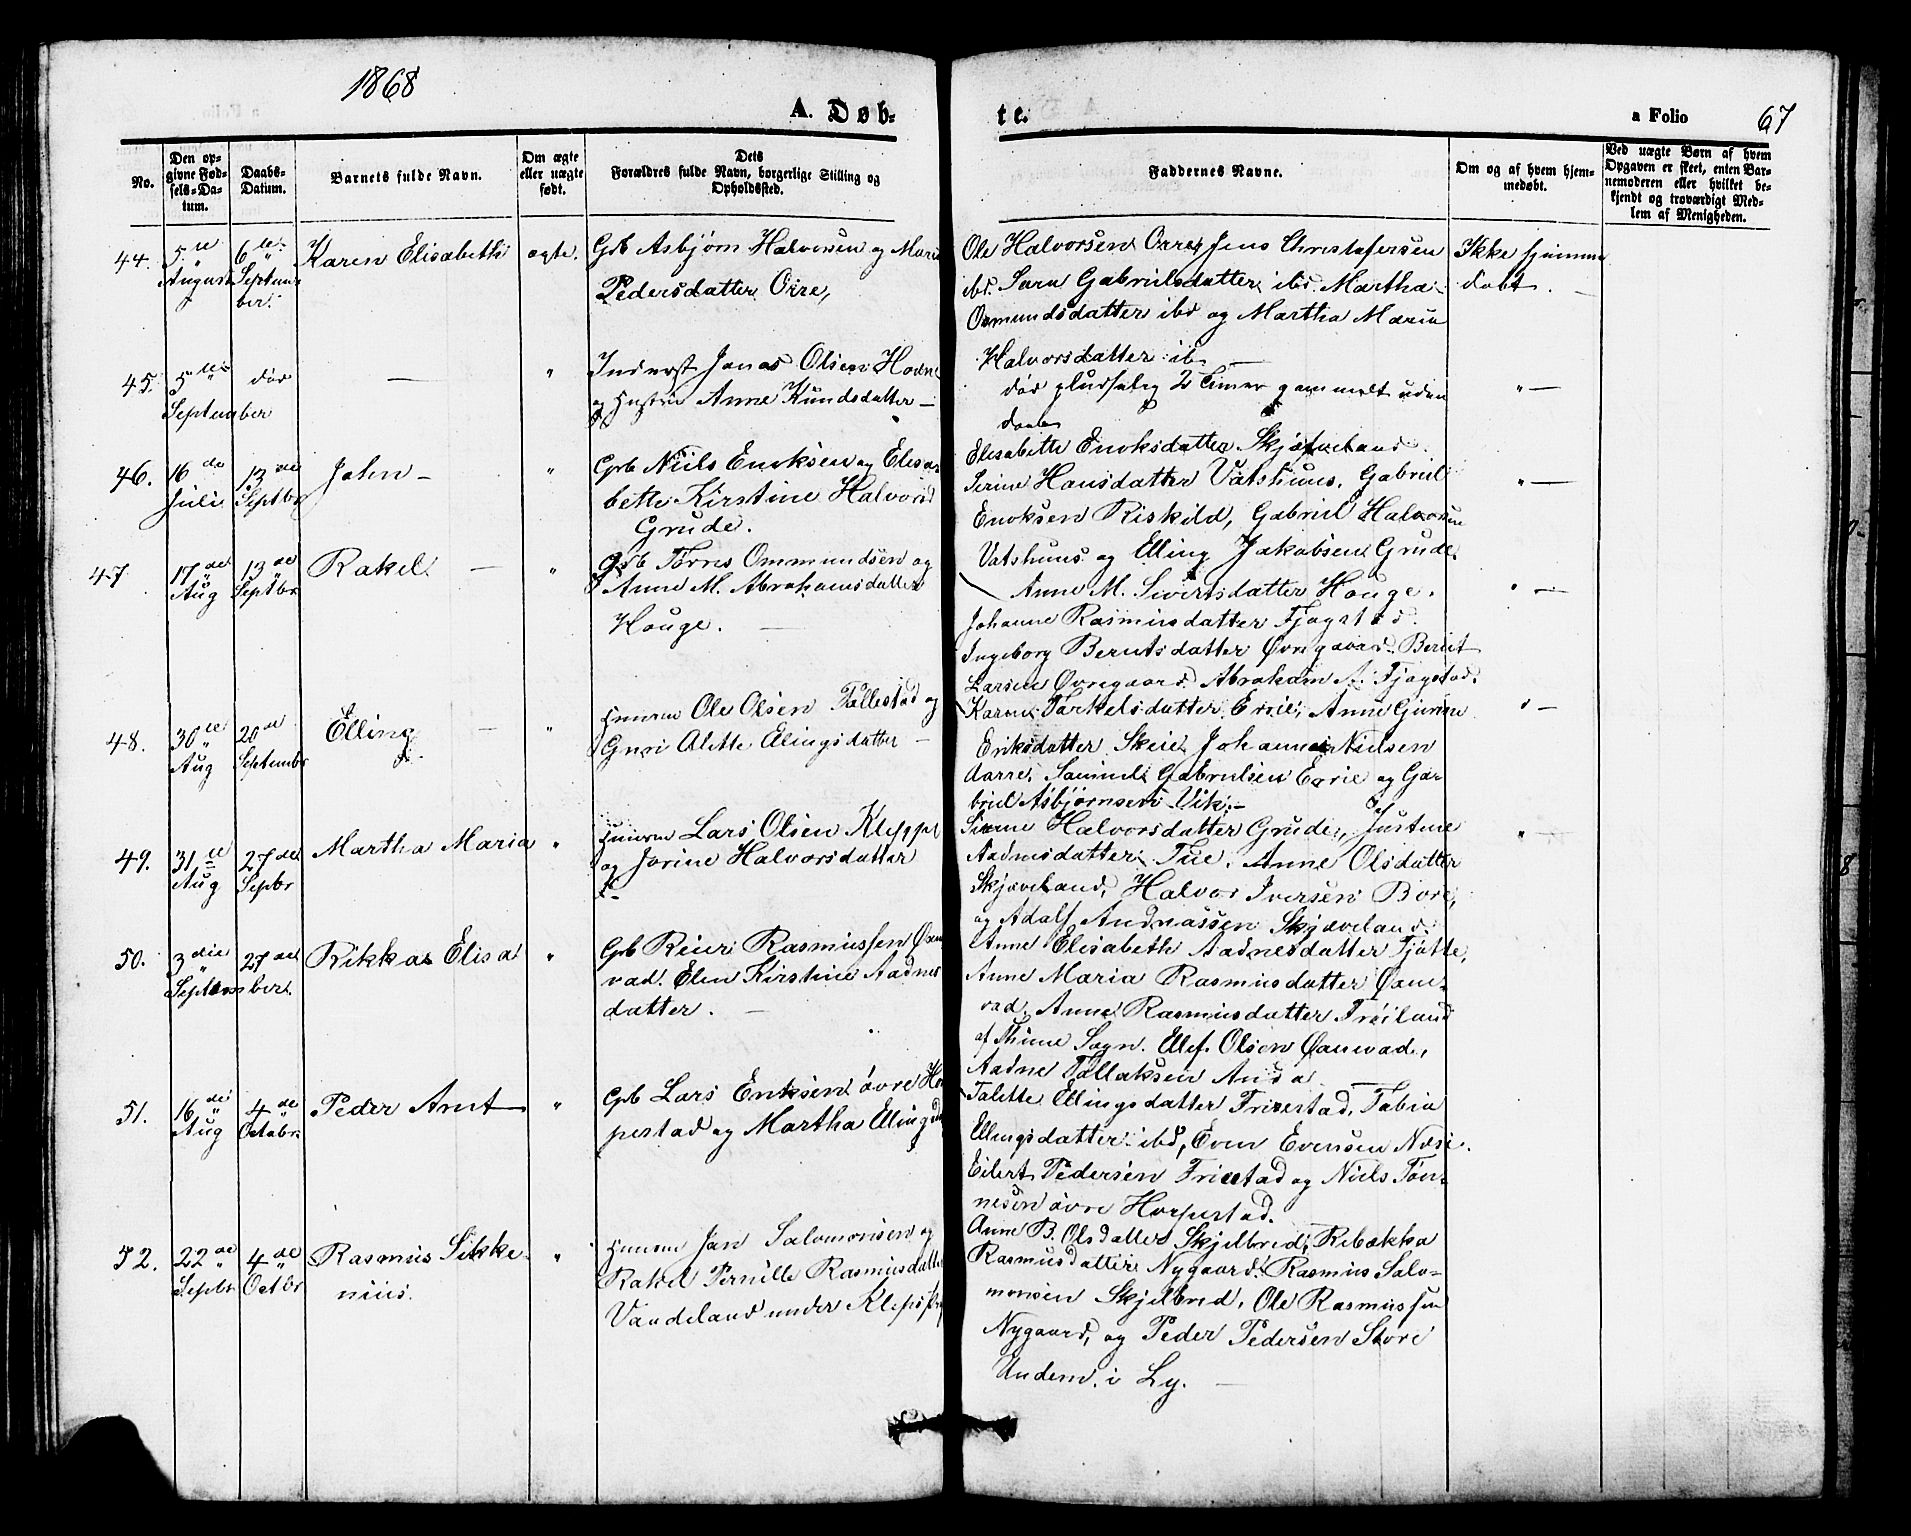 1868
A. Døb-
te.
a Folio 67
No.
Den op-
givne Fød-
sels-Da-
tum.
Daabs-
Datum.
Barnets fulde Navn.
Om ægte
eller uægte
født.
Dets
Forældres fulde Navn, borgerlige Stilling og
Opholdssted.
Faddernes Navne.
Om og af hvem hjem-
medøbt.
Ved uægte Børn af hvem
Opgaven er skeet, enten Bar-
nemoderen eller hvilket be-
kjendt og troværdigt Med-
lem af Menigheden.
44.
5te
August
6te
Septem
ber.
Karen Elisabeth
ægte.
Gb Asbjørn Halvorsen og Mari
Pedersdatter Orre,
Ole Halvorsen Orre, Jens Christofersen
ibd. Sara Gabrielsdatter ibd. Martha
Osmundsdatter ibd og Martha Maria
Halvorsdatter ib. —
Ikke hjemme
døbt. —
45.
5te
September
død
—
"
Inderst Jonas Olsen Hodne
og Hustru Anne Knudsdatter —
død 2 Timer gammelt uden
daab
" —
46.
16de
Juli
13de
Septbr
John —
"
Gb Niels Enoksen og Elisa-
bette Kirstine Halvorsd
Grude.
Elisabette Enoksdatter Skjæveland.
Serine Hansdatter Vatshuus, Gabriel
Enoksen Riskild, Gabriel Halvorsen
Vatshuus og Elling Jakobsen Grude.
" —
47
17de
Aug
13de
Septbr
Rakel. —
"
Gb Tørres Ommundsen og
Anne M. Abrahamsdatter
Houge. —
Anne M. Sivertsdatter Houge.
Johanne Rasmusdatter Fjogstad.
Ingeborg Berntsdatter Øvregaard. Bernt
Larsen Øvregaard. Abraham A. Fjogstad.
" —
48.
30te
Aug
20de
Septembr
Elling —
"
Huusm Ole Olsen Tollestad og
Guri Alette Elingsdatter —
Karen Torkelsdatter Errie, Anne Gurine
Eriksdatter Skeie, Johannes Nielsen
Aarre, Samuel Gabrielsen Errie og Ga-
briel Asbjørnsen Vik. —
" —
49.
31te
Aug
27de
Sepbr
Martha Maria
"
Huusm Lars Olsen Kleppe
og Jorine Halvorsdatter
Sirene Halvorsdatter Grude, Justine
Aadnesdatter Tue. Anne Olsdatter
Skjæveland, Halvor Iversen Bore,
og Adolf Andreassen Skjæveland.
" —
50.
3die
September.
27de
Rikka Elisa
"
Gb Reier Rasmussen Øxne
vad. Elen Kirstine Aadnes
datter. —
Anne Elisabeth Aadnesdatter Tjøtte,
Anne Maria Rasmusdatter Øxne-
vad, Anne Rasmusdatter Frøiland
af Thime Sogn. Ellef Olsen Øxnevad,
Aadne Tollaksen Anda —
51.
16de
Aug
4de
Octobr.
Peder Arnt
"
Gb Lars Eriksen øvre Ho
pestad og Martha Ellingsd
Talette Ellingsdatter Friestad, Tabia
Ellingsdatter ibd, Even Evensen Næse.
Eilert Pedersen Friestad og Niels Tøn-
nesen øvre Horpestad.
52.
22de
Sepbr
4de
Octbr
Rasmus Sikke-
nius.
"
Huusm Jan Salomonsen og
Rakel Pernille Rasmusdatter
Vandeland under Kleps Pr
Anne B. Olsdatter Skjelbred, Rebækka
Rasmusdatter Nygaard. Rasmus Salo-
monsen Skjelbred, Ole Rasmussen
Nygaard, og Peder Pedersen Store
Undem. i Ly. —